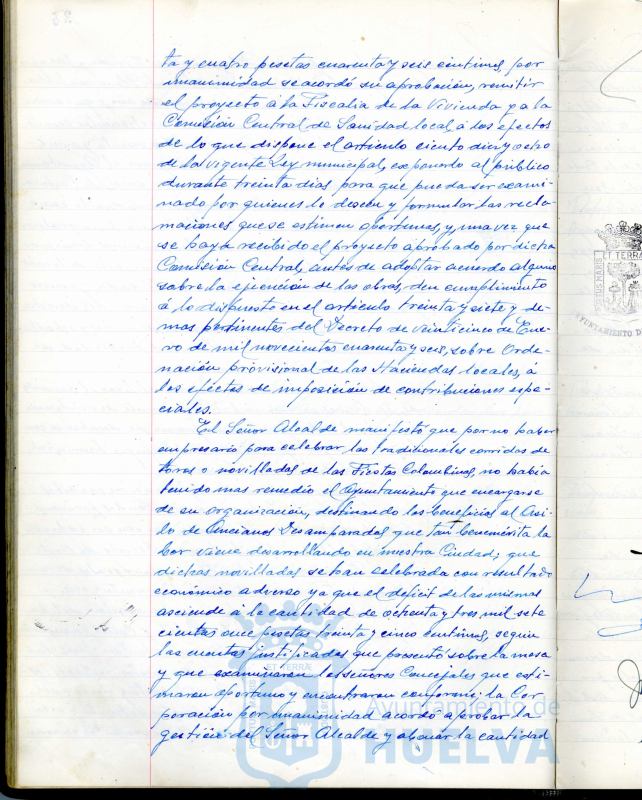 ta y cuatro pesetas cuarenta y seis centimos, por
unanimidad se acordó su aprobación, remitir
el proyecto á la Fiscalia de la Vivienda y a la
Comisión Central de Sanidad local, á los efectos
de lo que dispone el articulo ciento diez y ocho
de la vigente Ley municipal, exponerlo al público
durante treinta dias para que pueda ser exami-
nado por quienes lo deseen y formular las recla-
maciones que se estimen oportunas, y una vez que
se haya recibido el proyecto aprobado por dicha
Comisión Central, antes de adoptar acuerdo alguno
sobre la ejecución de las obras, den cumplimiento
á lo dispuesto en el articulo treinta y siete y de-
mas pertinentes del Decreto de veinticinco de Ene-
ro de mil novecientos cuarenta y seis, sobre Orde-
nación provisional de las Haciendas locales, á
los efectos de imposición de contribuciones espe-
ciales.
El Señor Alcalde manifestó que por no haber
empresario para celebrar las tradicionales corridas de
toros o novilladas de las Fiestas Colombinas, no habia
tenido mas remedio el Ayuntamiento que encargarse
de su organización, destinando los beneficios al Asi-
lo de Ancianos Desamparados que tan benemérita la
bor viene desarrollando en nuestra Ciudad; que
dichas novilladas se han celebrado con resultado
económico adverso ya que el deficit de las mismas
asciende á la cantidad de ochenta y tres mil sete
cientas once pesetas treinta y cinco centimos, segun
las cuentas justificadas que presentó sobre la mesa
y que examinaron los señores Concejales que esti-
maron oportuno y encontraron conforme; la Cor
poración por unanimidad acordó aprobar la
gestión del Señor Alcalde y abonar la cantidad
ET TERRAE
AYUNTAMIENTO DE
Ayuntamiento de
HUELVA